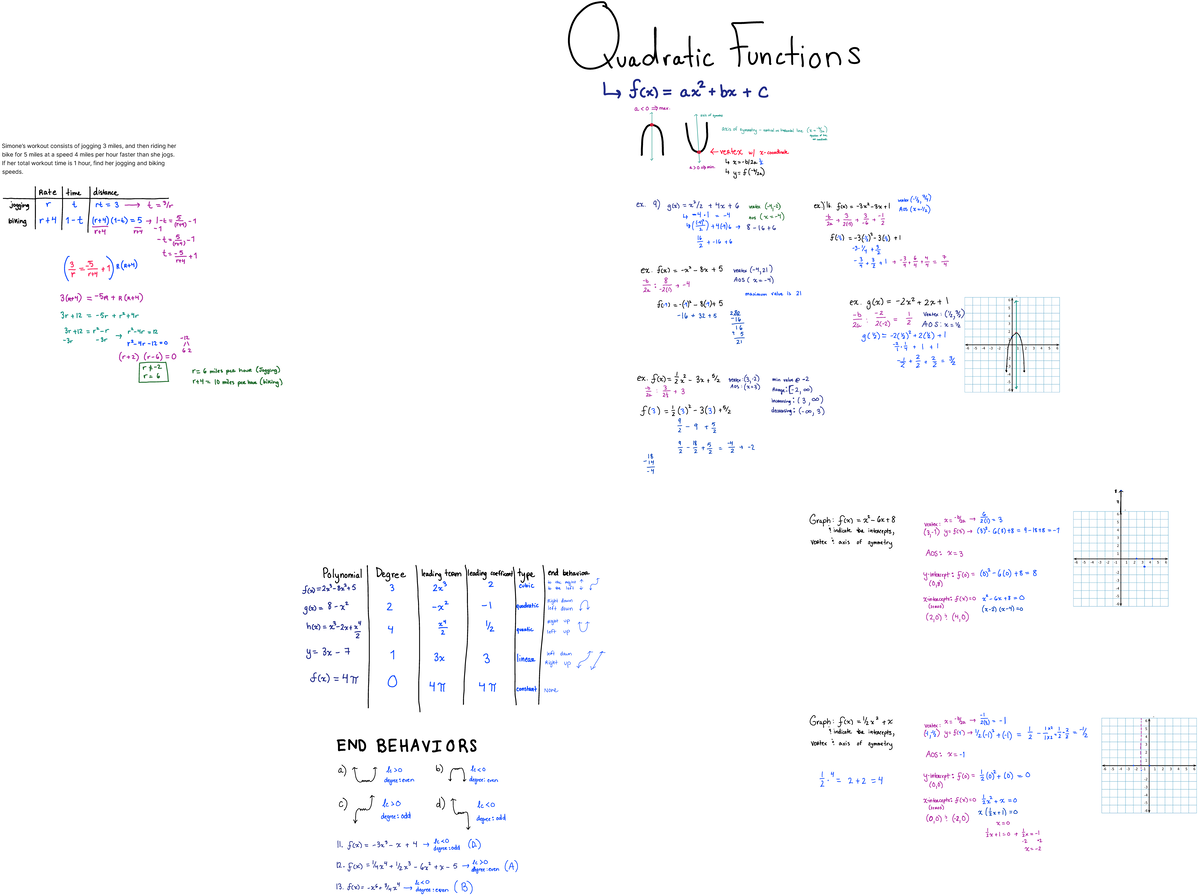 Quadratic Functions
↳ f(x) = ax² + bx + c
a < 0 ⇒ max
axis of symmetry
Axis of symmetry - vertical or horizontal line (x = -b/2a)
← vertex w/ x-coordinate
↳ x = -b/2a
↳ y = f(-b/2a)
a > 0 ⇒ min
Simone's workout consists of jogging 3 miles, and then riding her
bike for 5 miles at a speed 4 miles per hour faster than she jogs.
If her total workout time is 1 hour, find her jogging and biking
speeds.
Rate time distance
jogging r t rt = 3 → t = 3/r
biking r+4 1-t (r+4)(1-t) = 5 → 1-t = 5/(r+4) -1
r+4 r+4 -1
-t = 5/(r+4) -1
t = -5/(r+4) +1
(3/r = -5/(r+4) + 1) R(R+4)
3(R+4) = -5R + R(R+4)
3r+12 = -5r + r² + 4r
3r+12 = r² - r → r² - 4r = 12
-3r -3r r² - 4r - 12 = 0
-12
6·2
(r+2) (r-6) = 0
r ≠ -2
r = 6
r = 6 miles per hour (Jogging)
r+4 = 10 miles per hour (biking)
ex. 9) g(x) = x²/2 + 4x + 6 vertex (-4,-2)
↳ -4·1 = -4 AOS (x = -4)
↳ (-4)²/2 + 4(-4) + 6 → 8 - 16 + 6
16/2 + -16 + 6
ex.) 16. f(x) = -3x² - 3x + 1 vertex (-1/2, 7/4)
AOS (x = -1/2)
f(-1/2) = -3(-1/2)² - 3(-1/2) + 1
-3·1/4 + 3/2
-3/4 + 3/2 + 1 → -3/4 + 6/4 + 4/4 = 7/4
ex. f(x) = -x² - 8x + 5 vertex (-4, 21)
-b/2a : 8/-2(1) → -4 AOS (x = -4)
maximum value is 21
f(-4) = -(-4)² - 8(-4) + 5
-16 + 32 + 5
-16
16
+ 5
21
ex. g(x) = -2x² + 2x + 1
-b/2a : -2/2(-2) = 1/2 Vertex: (1/2, 3/2)
AOS: x = 1/2
g(1/2) = -2(1/2)² + 2(1/2) + 1
-2/1·1/4 + 1 + 1
-1/2 + 2/2 + 2/2 = 3/2
ex. f(x) = 1/2x² - 3x + 5/2 vertex: (3,-2) min value @ -2
AOS: (x=3) Range: [-2, ∞)
increasing: (3, ∞)
decreasing: (-∞, 3)
f(3) = 1/2(3)² - 3(3) + 5/2
9/2 - 9 + 5/2
9/2 - 18/2 + 5/2 = -4/2 → -2
18
-14
-4
Graph: f(x) = x² - 6x + 8
! indicate the intercepts,
vertex ! axis of symmetry
vertex: x = -b/2a → 6/2(1) = 3
(3,-1) y = f(x) → (3)² - 6(3) + 8 = 9 - 18 + 8 = -1
AOS: x = 3
y-intercept: f(0) = (0)² - 6(0) + 8 = 8
(0,8)
x-intercepts: f(x) = 0 x² - 6x + 8 = 0
(zeros) (x-2) (x-4) = 0
(2,0) ! (4,0)
Polynomial Degree leading term leading coefficient type end behavior
f(x) = 2x³ - 8x² + 5 3 2x³ 2 cubic
g(x) = 8 - x² 2 -x² -1 quadratic Right down left down
h(x) = x³ - 2x + x⁴/2 4 x⁴/2 1/2 quartic Right up left up
y = 3x - 7 1 3x 3 linear left down Right up
f(x) = 4π 0 4π 4π constant None
Graph: f(x) = 1/2x² + x
! indicate the intercepts,
vertex ! axis of symmetry
vertex: x = -b/2a → -1/2(1/2) = -1
(-1,-1/2) y = f(x) → 1/2(-1)² + (-1) = 1/2 - 1×2/1×2 = 1/2 - 2/2 = -1/2
AOS: x = -1
1/2·4 = 2 + 2 = 4
y-intercept: f(0) = 1/2(0)² + (0) = 0
(0,0)
x-intercepts: f(x) = 0 1/2x² + x = 0
(zeros) x(1/2x + 1) = 0
(0,0) ! (-2,0) x = 0
1/2x + 1 = 0 → 1/2x = -1
x = -2
END BEHAVIORS
a) lc > 0 degree: even
b) lc < 0 degree: even
c) lc > 0 degree: odd
d) lc < 0 degree: odd
11. f(x) = -3x³ - x + 4 → lc < 0 degree: odd (D)
12. f(x) = 1/4x⁴ + 1/2x³ - 6x² + x - 5 → lc > 0 degree: even (A)
13. f(x) = -x⁶ + 3/4x⁴ → lc < 0 degree: even (B)